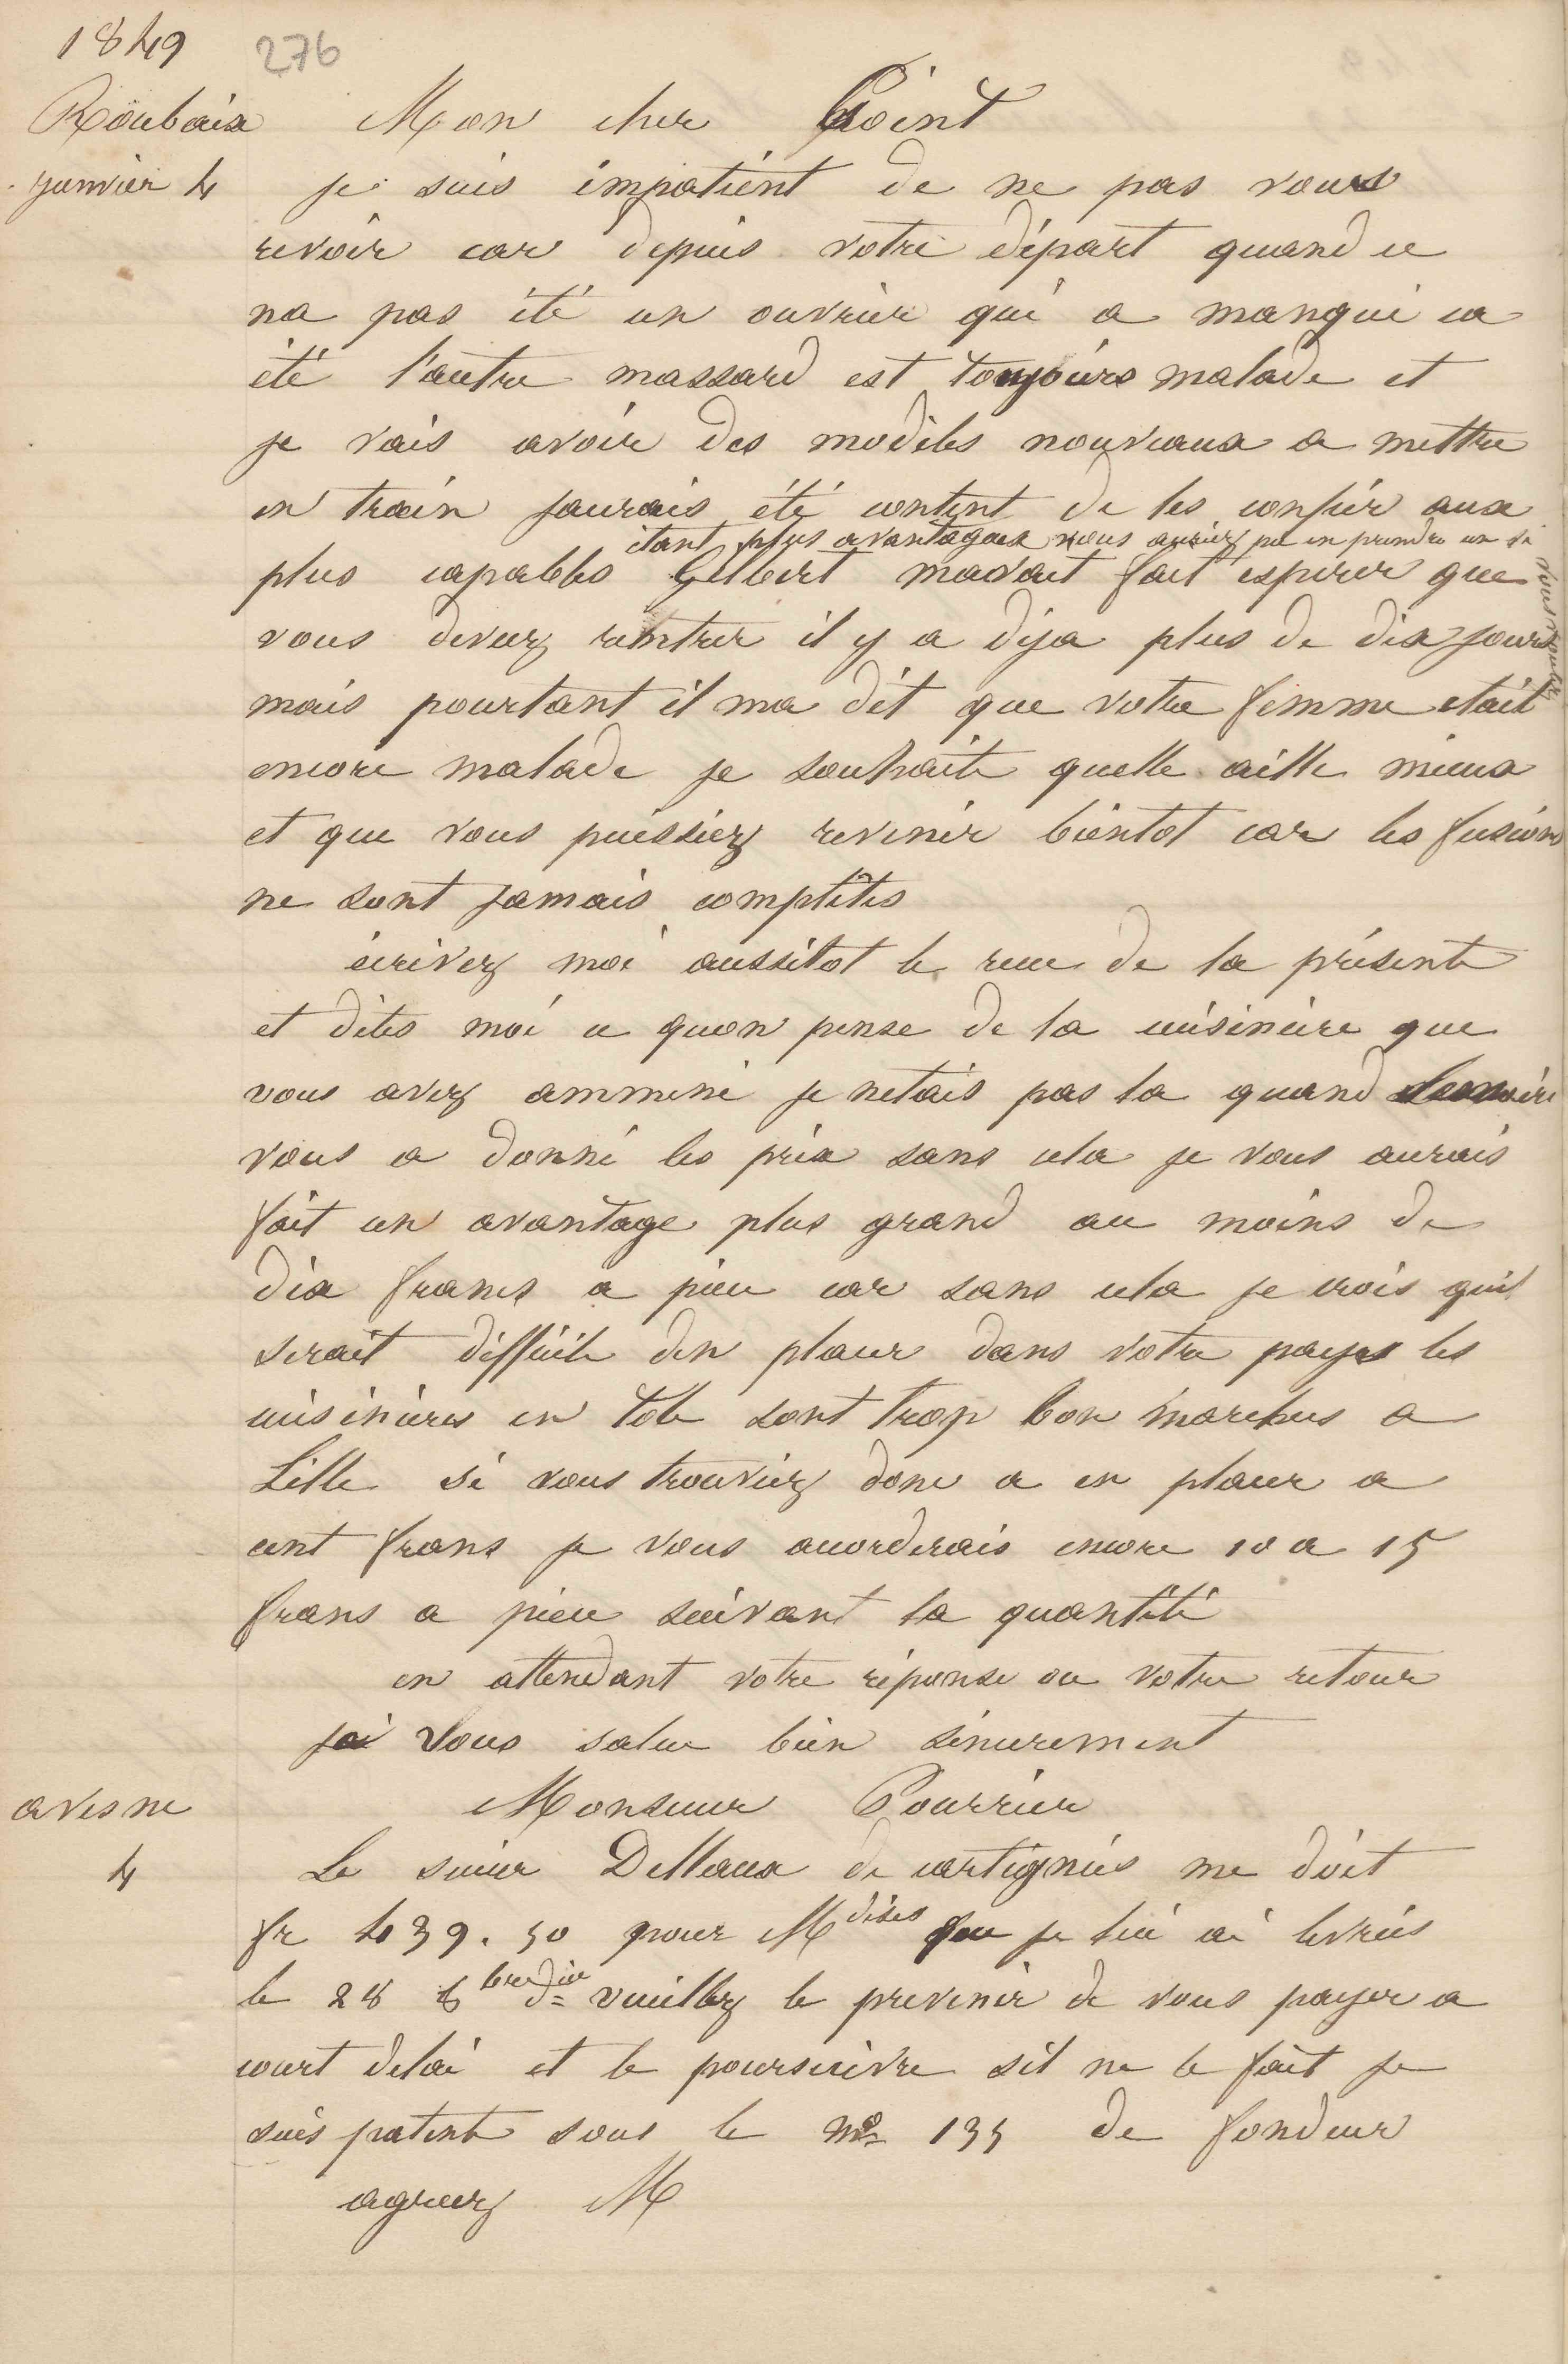 1849
276
Roubaix
Mon cher Point
janvier 4
je suis impatient de ne pas vous
revoir car depuis votre départ quand ce
na pas été un ouvrier qui a manqué ca
été l'autre massard est toujours malade et
je vais avoir des modèles nouveaux a mettre
en train jaurais été content de les confier aux
étant plus avantageux vous auriez pu en prendre un si
plus capables Gilbert mavait fait esperer que
vous deviez rentrer il y a déja plus de dix jours
mais pourtant il ma dit que votre femme etait
encore malade je souhaite quelle aille mieux
et que vous puissiez revenir bientot car les fusions
ne sont jamais complètes
écrivez moi aussitot le recu de la présente
et dites moi ce quon pense de la cuisinière que
vous avez ammené je netais pas la quand
vous a donné les prix sans cela je vous aurais
fait un avantage plus grand au moins de
dix francs a pièce car sans cela je crois quil
serait difficile den placer dans votre payes les
cuisinières en tole sont trop bon marchés a
Lille si vous trouviez donc a en placer a
cent frans je vous accorderais encore 10 a 15
frans a pièce suivant la quantité
en attendant votre réponse ou votre retour
jai vous salue bien sincerement
avesne
Monsieur Pourrier
4
Le sieur Dellaux de cartignies me doit
fr 439.50 pour Mdises que je lui ai livrées
le 28 bre dier veuillez le prevenir de vous payer a
court delai et le poursuivre sil ne le fait je
suis patente sous le no 135 de fondeur
agreez M